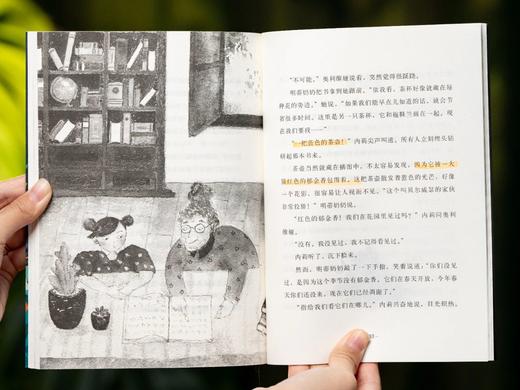 “不可能。”奥利维娅说着，突然觉得很跃跃。
明蒂奶奶把书拿到她跟前，“依我看，茶杯好像就藏在每
种花的旁边。”她说，“如果我们能早点儿知道的话，就会节
省很多时间，这里是另一只茶杯，它和拖鞋兰画在一起，现
在我们要找——”
“一把蓝色的茶壶！”内莉尖声叫道，所有人立刻埋头钻
研起那本书来。
茶壶当然就藏在插图中，不太容易发现，因为它被一大
簇红色的郁金香包围着。这把茶壶散发着蓝色的光芒，好像
一个花影，很容易让人视而不见。“这个叫贝尔威瑟的家伙
非常狡猾！”明蒂奶奶说。
“红色的郁金香！我们在花园里见过吗？”内莉问奥利
维娅。
“没有，我没见过，我不记得看见过。”
内莉听了，沉下脸来。
然而，明蒂奶奶敲了一下手指，笑着说道：“你们没见
过，是因为这个季节没有郁金香。它们在春天开放，今年春
天你们还没来，现在它们已经凋谢了。”
“指给我们看它们在哪儿。”内莉兴奋地说，目光炽热。